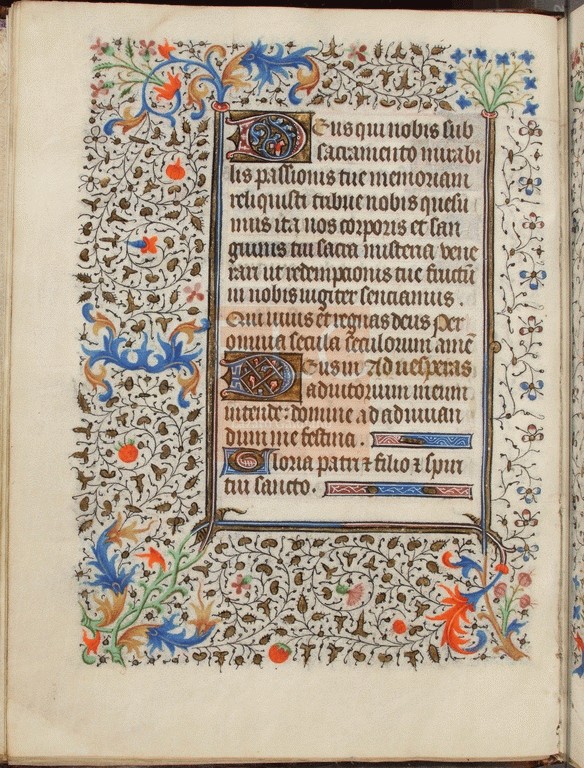 Deus qui nobis sub
sacramento mirabi
lis passionis tue memoriam
reliquisti tribue nobis quesu
mus ita nos corporis et san
guinis tui sacra misteria vene
rari ut redempcionis tue fructū
in nobis iugiter senciamus.
Qui vivis et regnas deus per
omnia secula seculorum amē
Deus in Ad vesperas
adiutorium meum
intende: domine ad adiuvan
dum me festina.
Gloria patri ⁊ filio ⁊ spiri
tui sancto.